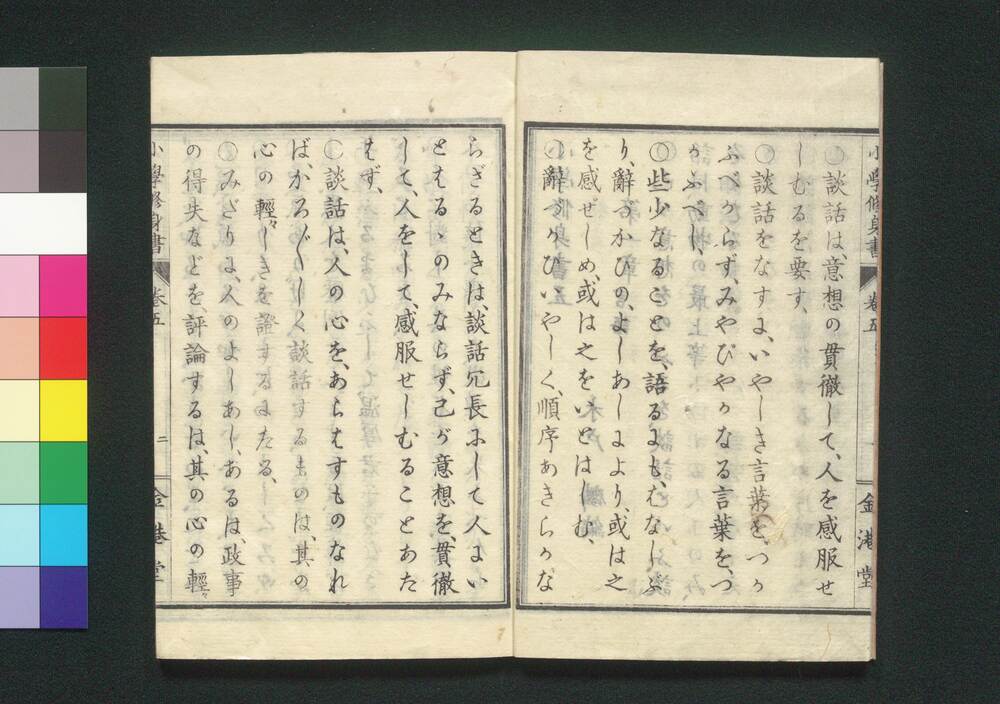 小學修身書
卷五
一
金港堂
〇談話は、意想の貫徹して、人を感服せ
しむるを要す、
〇談話をなすに、いやしき言葉を、つか
ふべからず、みやびやかなる言葉を、つ
かふべし、
〇些少なることを、語るにも、むなしふ
り、辭づかひの、よしあしにより、或は之
を感ぜしめ、或は之を、いとはしむ、
〇辭つかひ、いやしく、順序あきらかな
らざるときは、談話冗長にして人にい
とはるゝのみならず、己が意想を、貫徹
して、人をして、感服せしむることあた
はず、
〇談話は、人の心を、あらはすものなれ
ば、かろ〴〵しく談話するものは、其の
心の輕々しきを證するにたる、
〇みだりに、人のよしあし、あるは、政事
の得失などを、評論するは、其の心の輕々
小學修身書
卷五
二
金港堂